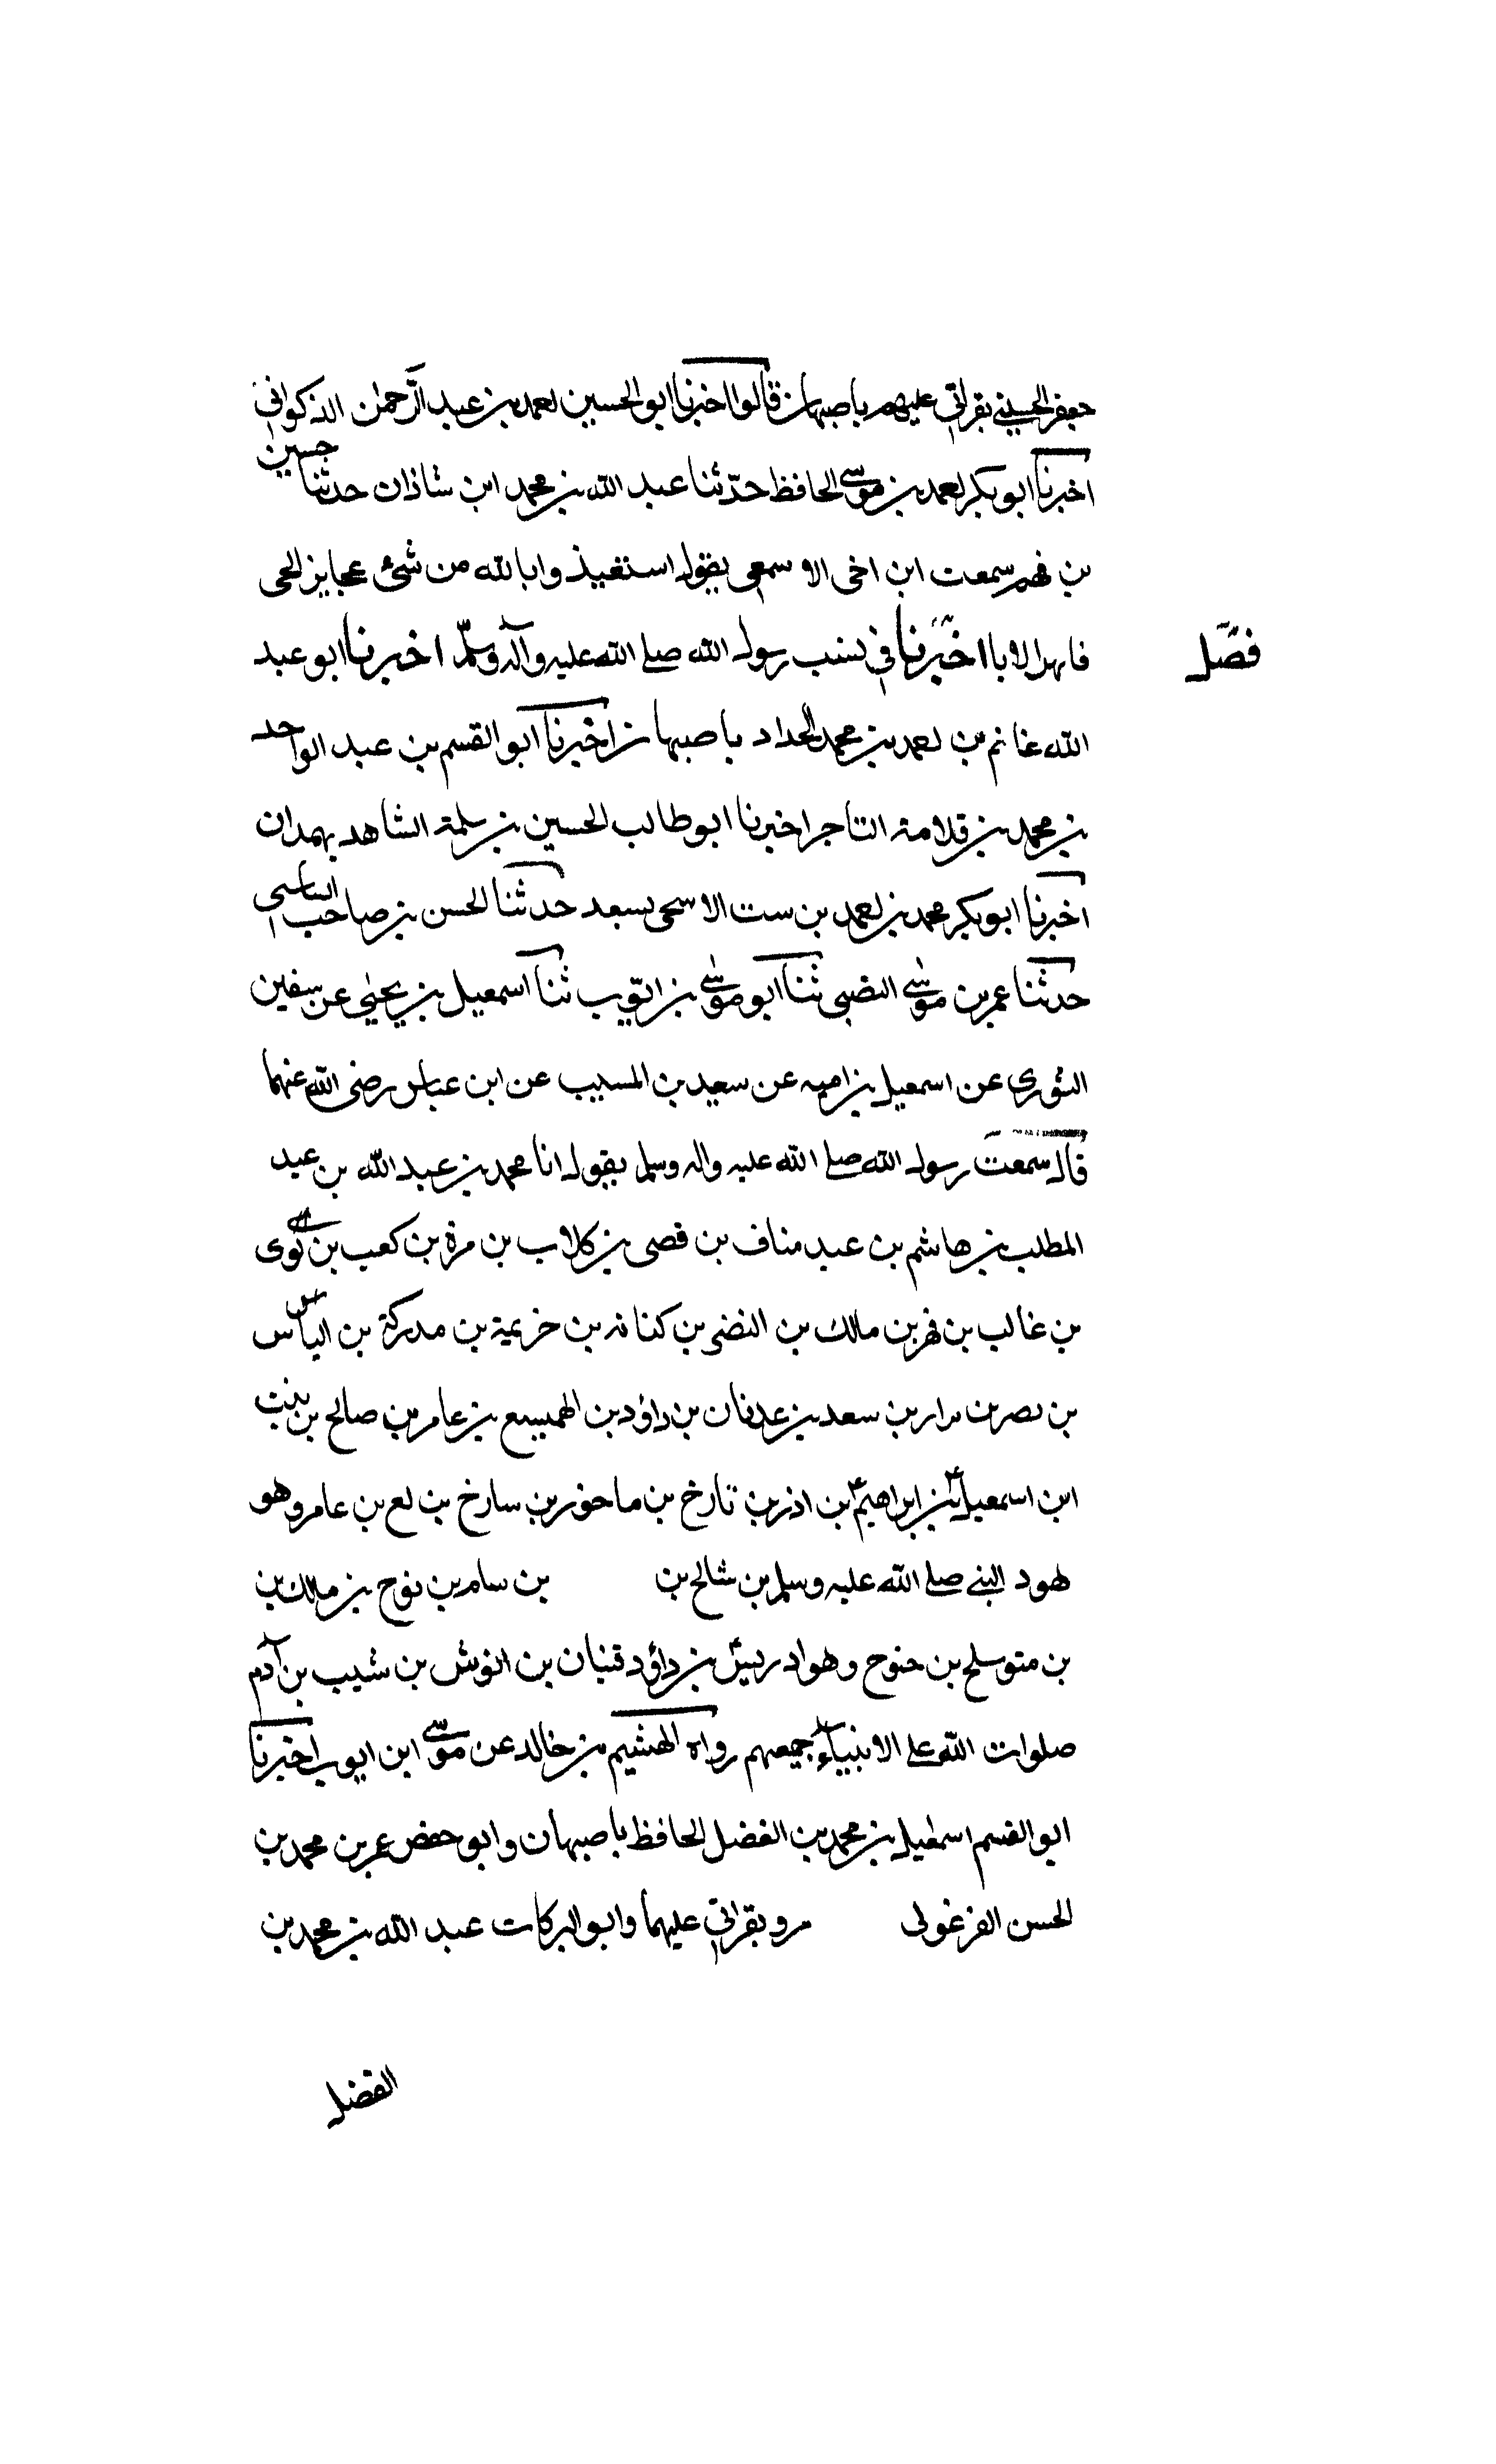 جعفر الحسيني بقراتي عليهم باصبهان قالوا اخبرنا ابو الحسين احمد بن عبد الرّحمن الذكواني
اخبرنا ابو بكر احمد بن موسى الحافظ حدّثنا عبد الله بن محمد ابن شاذان حدثنا حسين
بن فهم سمعت ابن اخي الاسمعي يقول استعيذوا بالله من شئ عجايز الحى
فصل
اخبرنا في نسب رسول الله صلى الله عليه وآله وسلّم اخبرنا ابو عبد
الله غانم بن احمد بن محمد الحداد باصبهان اخبرنا ابو القسم بن عبد الواحد
بن محمد بن قلامة التاجر اخبرنا ابو طالب الحسين بن سلمة الشاهد بهمدان
اخبرنا ابو بكر محمد بن احمد بن ست الاسحى بسعد حدثنا الحسن بن صاحب
حدثنا عمر بن موسى النضبي ثنا ابو موسى بن ايّوب ثنا اسمعيل بن يحيى عن سفين
الثوري عن اسمعيل بن اميه عن سعيد بن المسيب عن ابن عباس رضى الله عنهما
قال سمعت رسول الله صلى الله عليه واله وسلم يقول انا محمد بن عبد الله بن عبد
المطلب بن هاشم بن عبد مناف بن قصى بن كلاب بن مرة بن كعب بن لوى
بن غالب بن فهر بن مالك بن النضر بن كنانه بن خزيمة بن مدركة بن الياس
بن نصر بن نزار بن سعد بن عدنان بن داؤد بن الهميسع بن عامر بن صالح بن بنت
ابن اسمعيل بن ابراهيم بن اذر بن تارخ بن ماحور بن سارخ بن لع بن عامر وهو
هود النبي صلى الله عليه وسلم بن شالح بن بن سام بن نوح بن مالك بن
بن متوسلح بن حنوح وهو ادريس بن داؤد قنبان بن انوش بن شيب بن آدم
صلوات الله على الانبياء جميعهم رواه الهشيم بن خالد عن موسى ابن ايوب اخبرنا
ابو القسم اسمعيل بن محمد بن الفضل الحافظ باصبهان وابو حفص عمر بن محمد بن
الحسن الفرغولى مرو بقراتي عليهما وابو البركات عبد الله بن محمد بن
الفضل